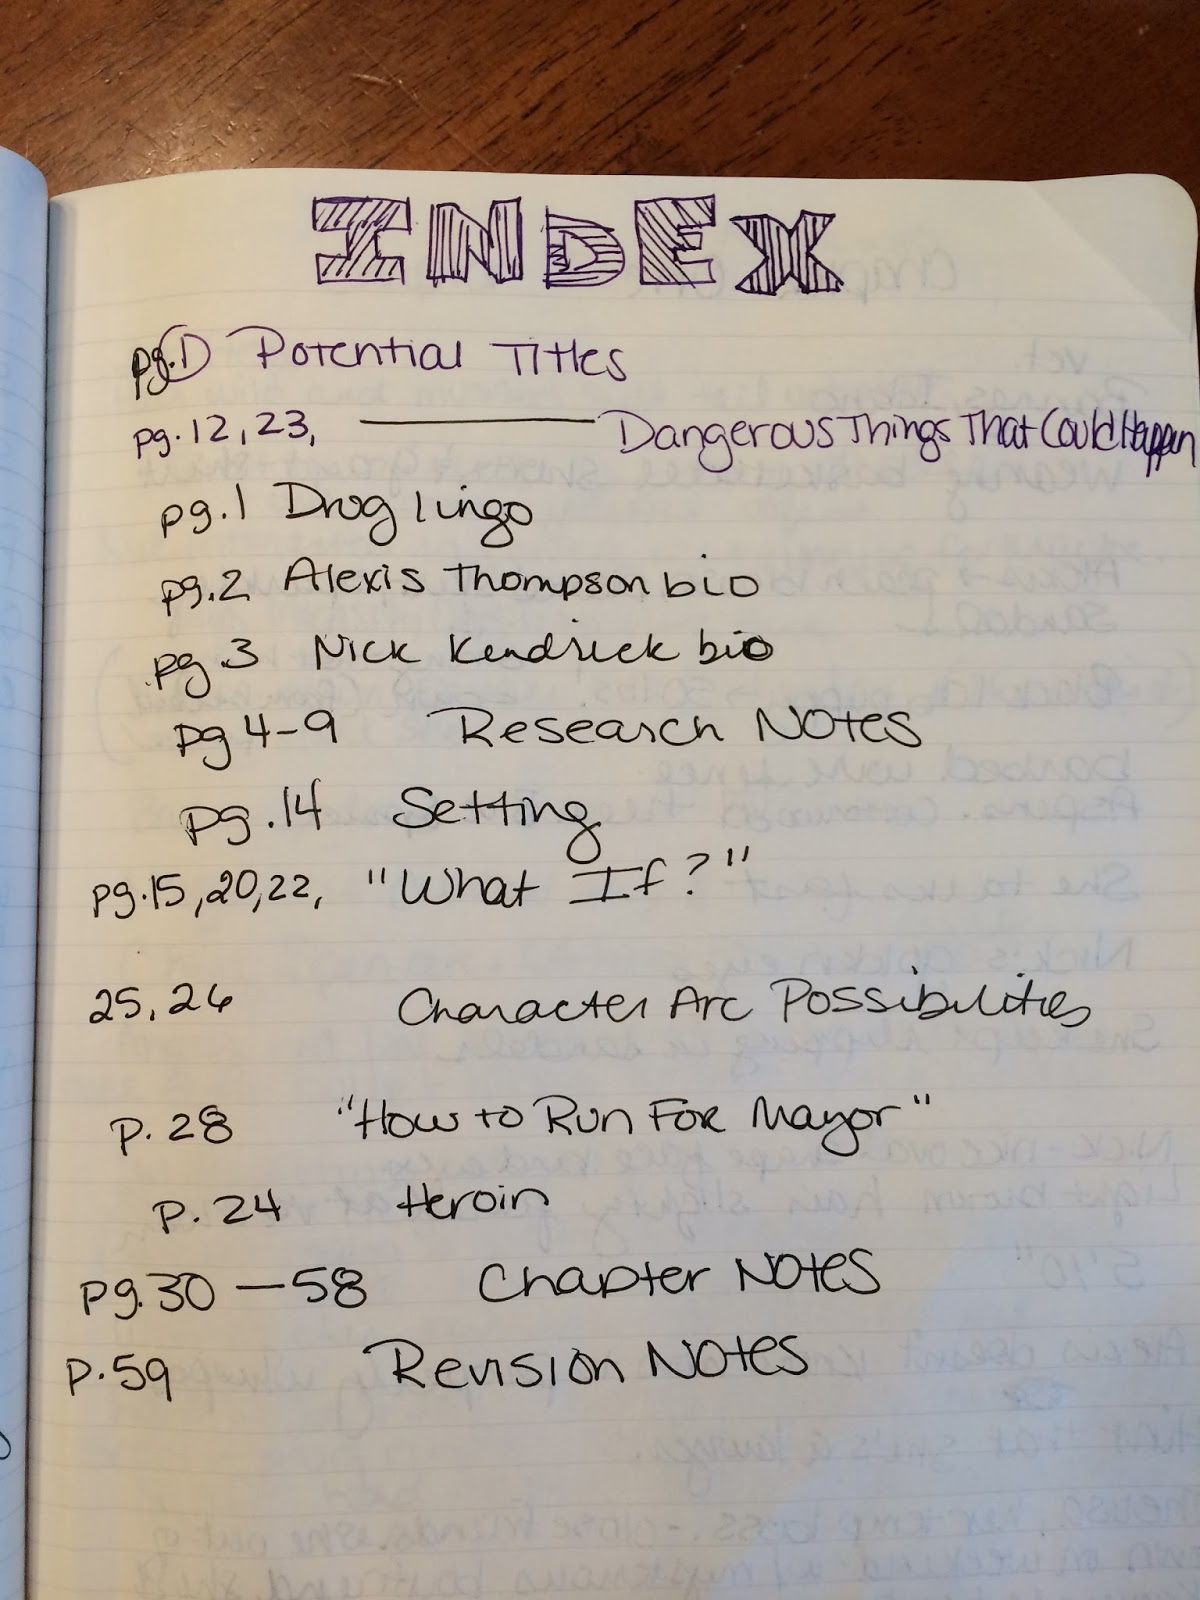 INDEX
pg. D Potential Titles
pg. 12, 23, — Dangerous Things That Could Happen
pg. 1 Drug lingo
pg. 2 Alexis Thompson bio
pg 3 Nick Kendrick bio
pg 4-9 Research Notes
pg. 14 Setting
pg. 15, 20, 22, "What If?"
25, 26 Character Arc Possibilities
p. 28 "How to Run For Mayor"
p. 24 Heroin
pg. 30 — 58 Chapter Notes
p. 59 Revision Notes